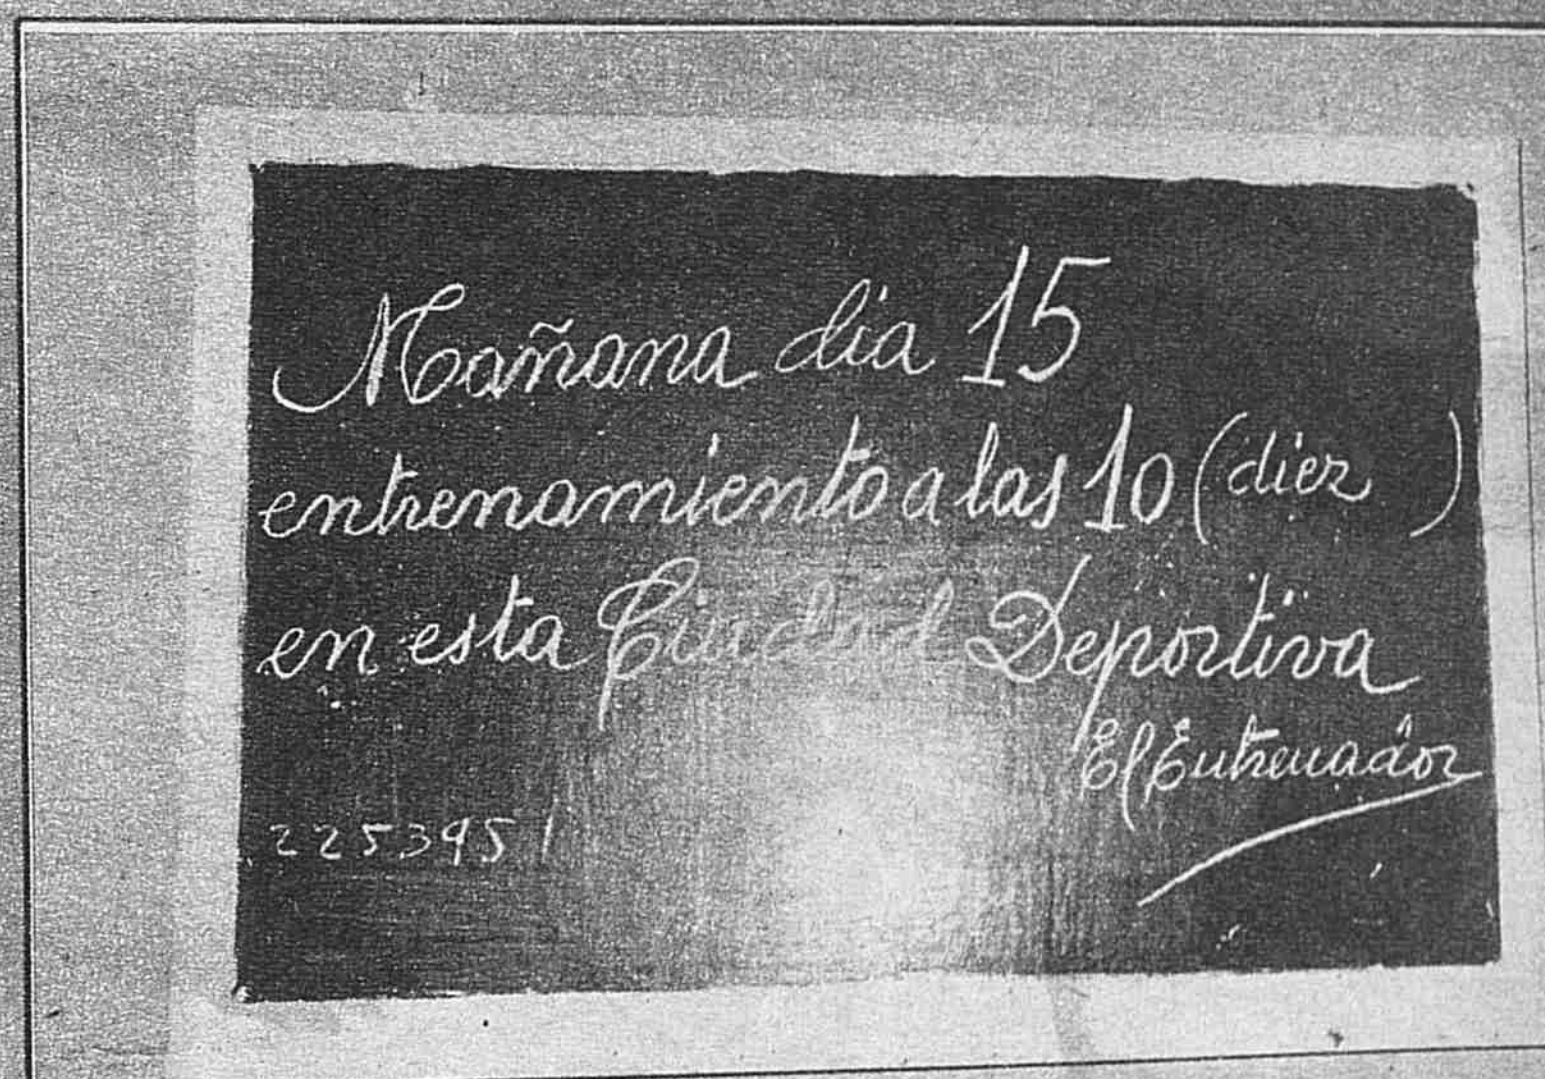 Mañana dia 15
entrenamiento a las 10 (diez)
en esta Ciudad Deportiva
El Entrenador
2253951